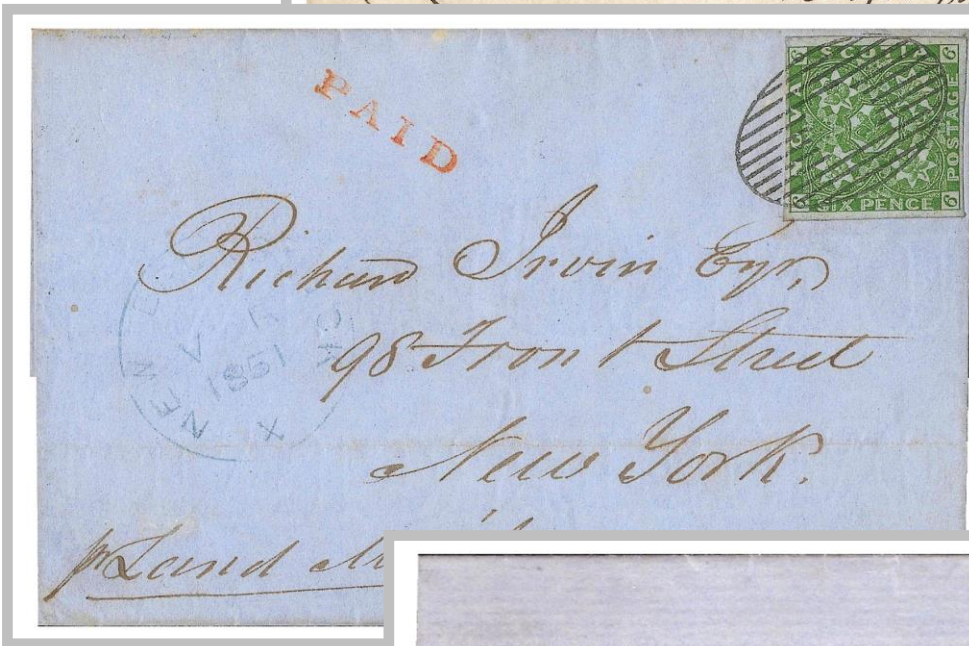 PAID
6 SCOTIA 6
POSTAGE
6 SIX PENCE 6
Richard Irvin Esqr,
98 Front Street
New York.
V R
1851
pr Land